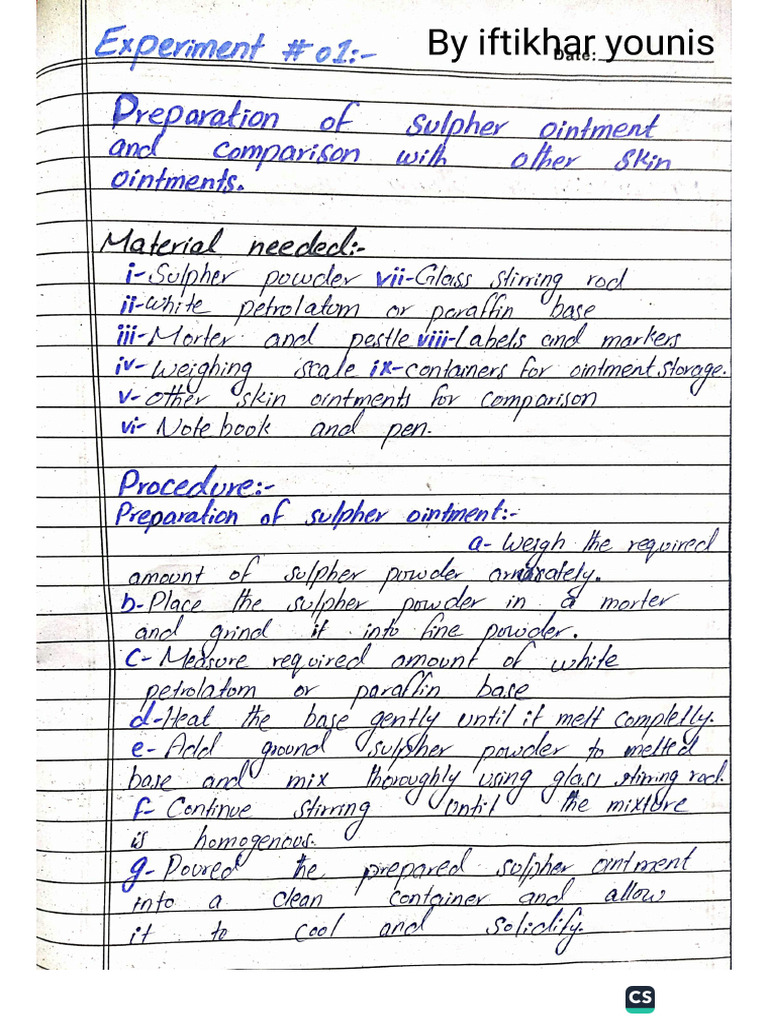 Experiment #01:-
By iftikhar younis
Date:
Preparation of sulpher ointment
and comparison with other skin
ointments.
Material needed:-
i-Sulpher powder vii-Glass stirring rod
ii-White petrolatom or paraffin base
iii-Morter and pestle viii-Labels and markers
iv-Weighing scale ix-containers for ointment storage.
v-Other skin ointments for comparison
vi-Note book and pen.
Procedure:-
Preparation of sulpher ointment:-
a-Weigh the required
amount of sulpher powder
b-Place the sulpher powder in a morter
and grind it into fine powder.
c-Measure required amount of white
petrolatom or paraffin base
d-Heat the base gently until it melt completly.
e-Add ground sulpher powder to melted
base and mix thoroughly using glass stirring rod.
f-Continue stirring until the mixture
is homogenous.
g-Poured the prepared sulpher ointment
into a clean container and allow
it to cool and solidify.
CS